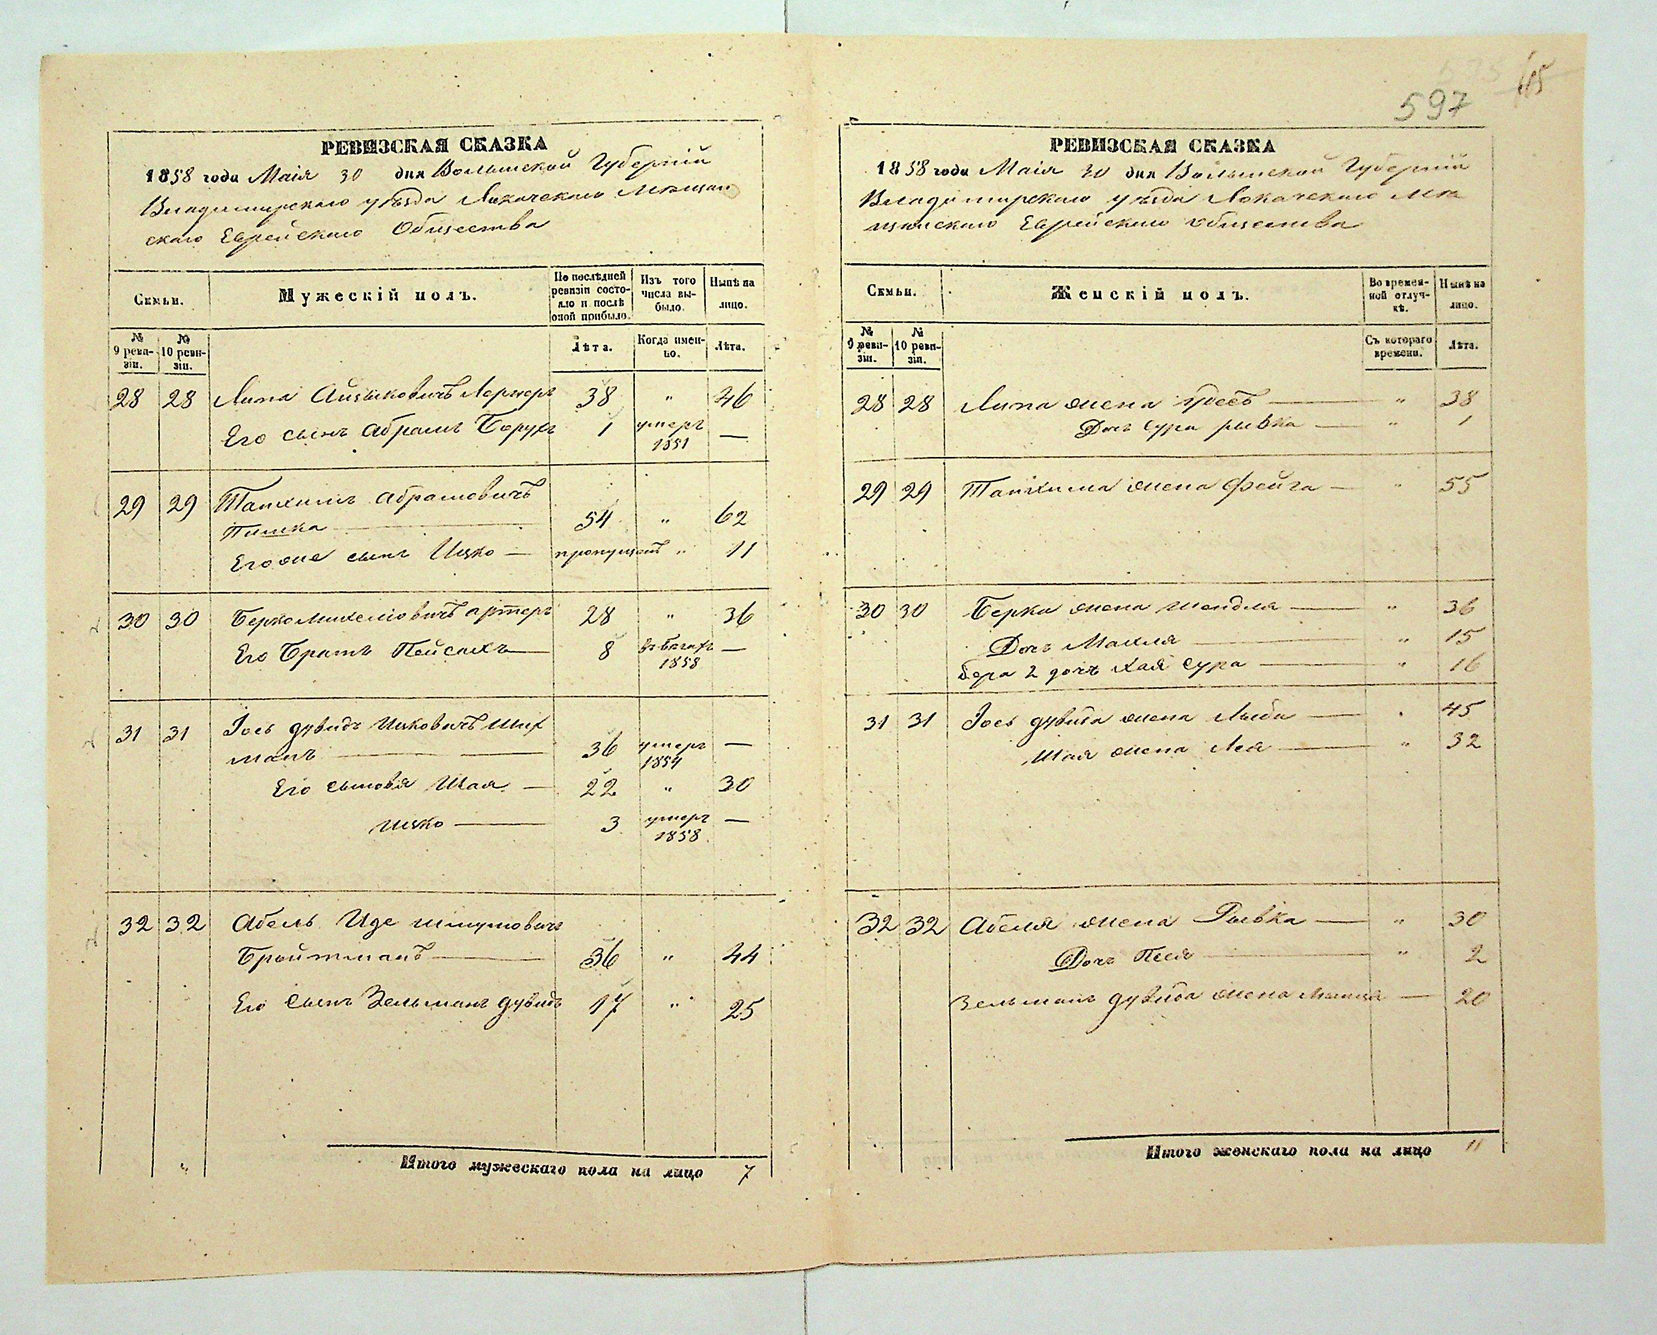 597
РЕВИЗСКАЯ СКАЗКА
1858 года Маія 30 дня Волынской Губерніи
Владимирскаго уѣзда Локачскаго Мѣщан
скаго Еврейскаго Общества
Семьи.
Мужескій полъ.
По послѣдней ревизіи состояло и послѣ оной прибыло.
Изъ того числа выбыло.
Нынѣ на лицо.
№ 9 ревизіи.
№ 10 ревизіи.
Лѣта.
Когда именно.
Лѣта.
28 28 Липа Айзыковичъ Лернеръ 38 " 46
Его сынъ Абрамъ Борухъ 1 умеръ 1851 —
29 29 Танхимъ Абрамовичъ
54 " 62
Его же сынъ Ицко — пропущенъ " 11
30 30 Берко 28 " 36
Его Братъ Пейсахъ — 8 въ бѣгахъ 1858 —
31 31 Іось дувидъ Ицковичъ Ших
манъ — 36 умеръ 1854 —
Его сыновя Шая — 22 " 30
Ицко — 3 умеръ 1858 —
32 32 Абель Иде Шмулiовичъ
Бройтманъ — 36 " 44
Его сынъ Зельманъ дувидъ 17 " 25
Итого мужескаго пола на лицо 7
РЕВИЗСКАЯ СКАЗКА
1858 года Маія 30 дня Волынской Губерніи
Владимирскаго уѣзда Локачскаго Мѣ
щанскаго Еврейскаго общества
Семьи.
Женскій полъ.
Во временной отлучкѣ.
Нынѣ на лицо.
№ 9 ревизіи.
№ 10 ревизіи.
Съ котораго времени.
Лѣта.
28 28 Липа жена — " 38
Дочь Сура рывка — " 1
29 29 Танхима жена Фейга — " 55
30 30 Берка жена Шендля — " 36
Дочь Махля — " 15
2 дочь Хая Сура — " 16
31 31 Іось дувида жена — " 45
Шая жена Лея — " 32
32 32 Абеля жена Рывка — " 30
Дочь Песя — " 2
Зельмана дувида жена — 20
Итого женскаго пола на лицо 11